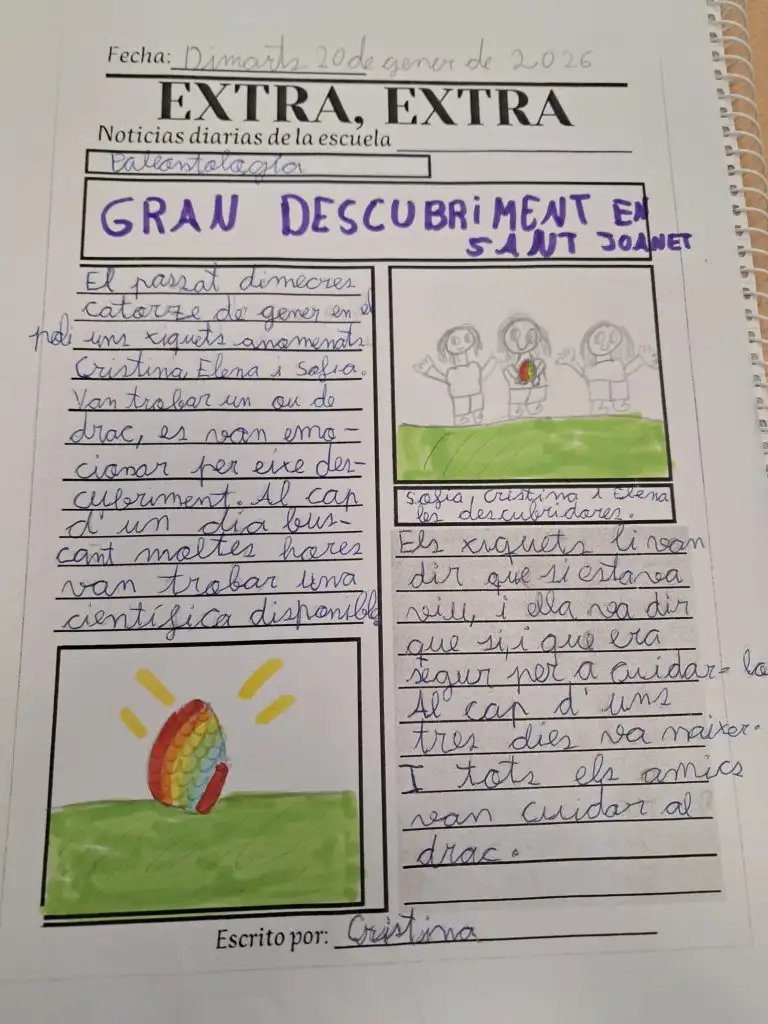 Fecha: Dimarts 20 de gener de 2026
EXTRA, EXTRA
Noticias diarias de la escuela
Paleontología
GRAN DESCUBRIMENT EN
SANT JOANET
El passat dimecres
catorze de gener en el
poli uns xiquets anomenats
Cristina, Elena i Sofia.
Van trobar un ou de
drac, es van emo-
cionar per eixe des-
cubriment. Al cap
d'un dia bus-
cant moltes hores
van trobar una
científica disponible
Sofia, Cristina i Elena
les descubridores.
Els xiquets li van
dir que si estava
viu, i ella va dir
que si, i que era
segur per a cuidar-lo
Al cap d'uns
tres dies va naixer.
I tots els amics
van cuidar al
drac.
Escrito por: Cristina